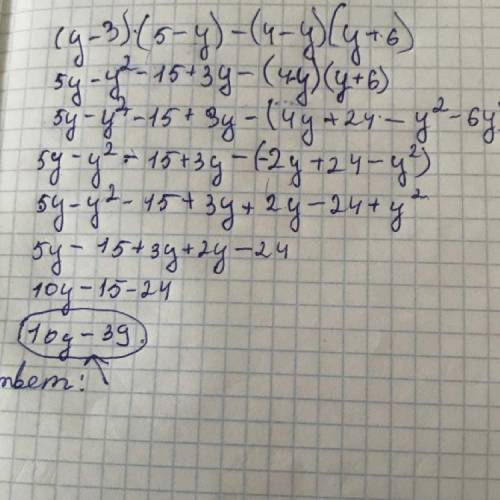 (y-3)·(5-y)-(4-y)(y+6)
5y-y²-15+3y-(4-y)(y+6)
5y-y²-15+3y-(4y+24-y²-6y
5y-y²-15+3y-(-2y+24-y²)
5y-y²-15+3y+2y-24+y²
5y-15+3y+2y-24
10y-15-24
10y-39.
твет: